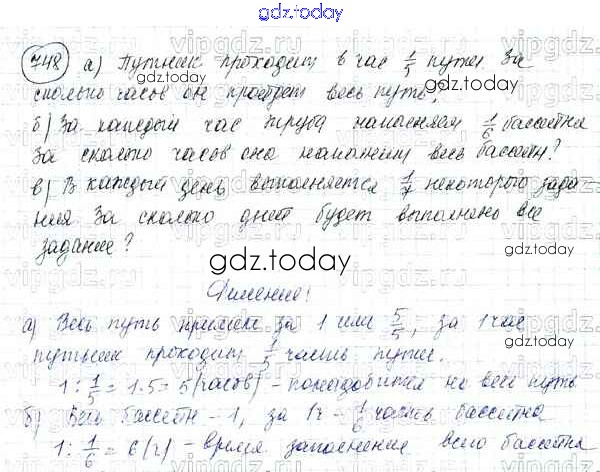 gdz.today
748 а) Путник проходит в час 1/5 пути. За
сколько часов он пройдет весь путь?
б) За каждый час труба наполняет 1/6 бассейна
За сколько часов она наполнит весь бассейн?
в) В каждый день выполняется 1/7 некоторого зада-
ния. За сколько дней будет выполнено все
задание?
gdz.today
Решение:
а) Весь путь примем за 1 или 5/5, за 1 час
путник проходит 1/5 часть пути.
1 : 1/5 = 1·5 = 5 (часов) - понадобится на весь путь
б) Весь бассейн - 1, за 1ч - 1/6 часть бассейна
1 : 1/6 = 6 (ч) - время заполнения всего бассейна